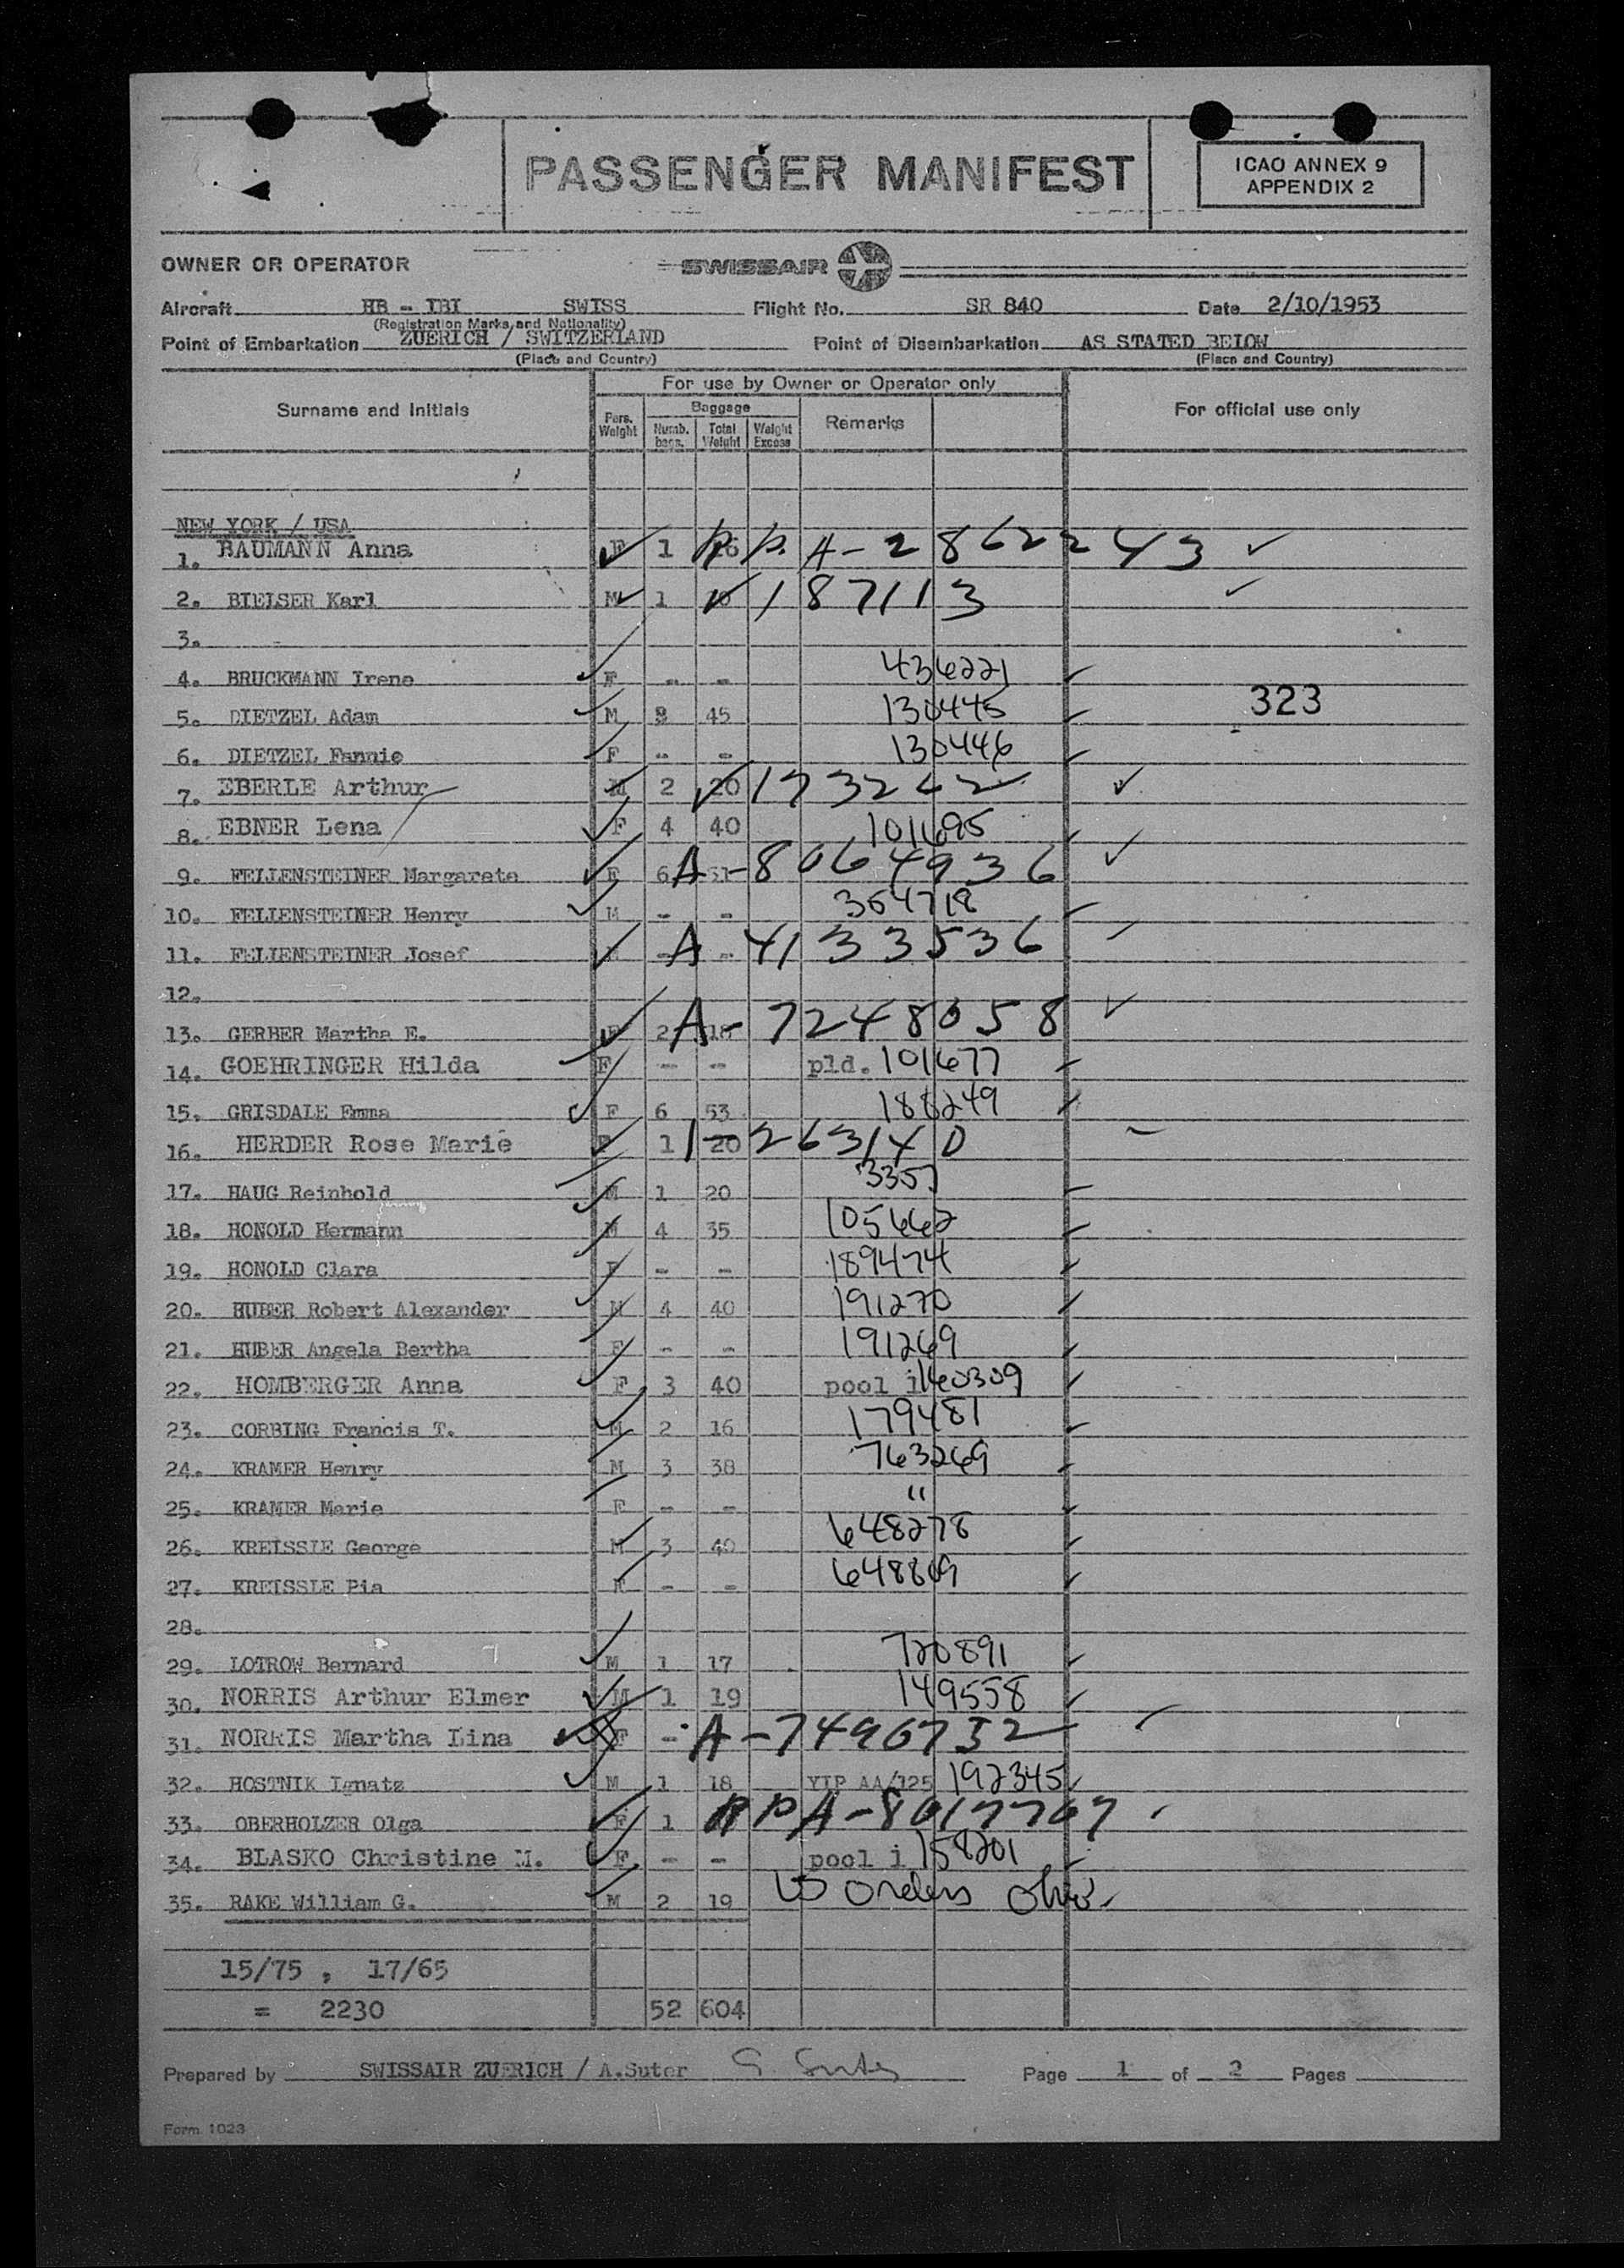 PASSENGER MANIFEST
ICAO ANNEX 9
APPENDIX 2
OWNER OR OPERATOR SWISSAIR
Aircraft HB - IBI SWISS Flight No. SR 840 Date 2/10/1953
(Registration Marks and Nationality)
Point of Embarkation ZUERICH / SWITZERLAND Point of Disembarkation AS STATED BELOW
(Place and Country) (Place and Country)
For use by Owner or Operator only
Surname and Initials Pers. Weight Baggage Numb. bags. Total Weight Weight Excess Remarks For official use only
NEW YORK / USA
1. BAUMANN Anna F 1 A-2862243
2. BIELSER Karl M 1 187113
3.
4. BRUCKMANN Irene F - - 436221
5. DIETZEL Adam M 45 130445 323
6. DIETZEL Fannie F - - 130446
7. EBERLE Arthur M 2 20 173242
8. EBNER Lena F 4 40 101695
9. FELLENSTEINER Margarete F 6 51 A-8064936
10. FELLENSTEINER Henry M - - 364718
11. FELLENSTEINER Josef - - A 4133536
12.
13. GERBER Martha E. F 2 18 A-7248058
14. GOEHRINGER Hilda F - - pld. 101677
15. GRISDALE Emma F 6 53 188249
16. HERDER Rose Marie F 1 20 1-263140
17. HAUG Reinhold M 1 20 3357
18. HONOLD Hermann M 4 35 105662
19. HONOLD Clara F - - 189474
20. HUBER Robert Alexander M 4 40 191270
21. HUBER Angela Bertha F - - 191269
22. HOMBERGER Anna F 3 40 pool i 160309
23. CORBING Francis T. M 2 16 179481
24. KRAMER Henry M 3 38 763269
25. KRAMER Marie F - - "
26. KREISSLE George M 3 40 648278
27. KREISSLE Pia F - - 648809
28.
29. LOTROW Bernard M 1 17 720891
30. NORRIS Arthur Elmer M 1 19 149558
31. NORRIS Martha Lina F - A-7496732
32. HOSTNIK Ignatz M 1 18 YIP AA/125 192345
33. OBERHOLZER Olga F 1 A-8017707
34. BLASKO Christine M. F - - pool i 158201
35. RAKE William G. M 2 19 US Orders
15/75 , 17/65
= 2230 52 604
Prepared by SWISSAIR ZUERICH / A.Suter Page 1 of 2 Pages
Form 1023